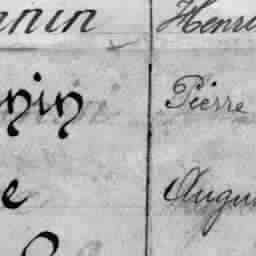 nnin Henri
nin Pierre
e Augu